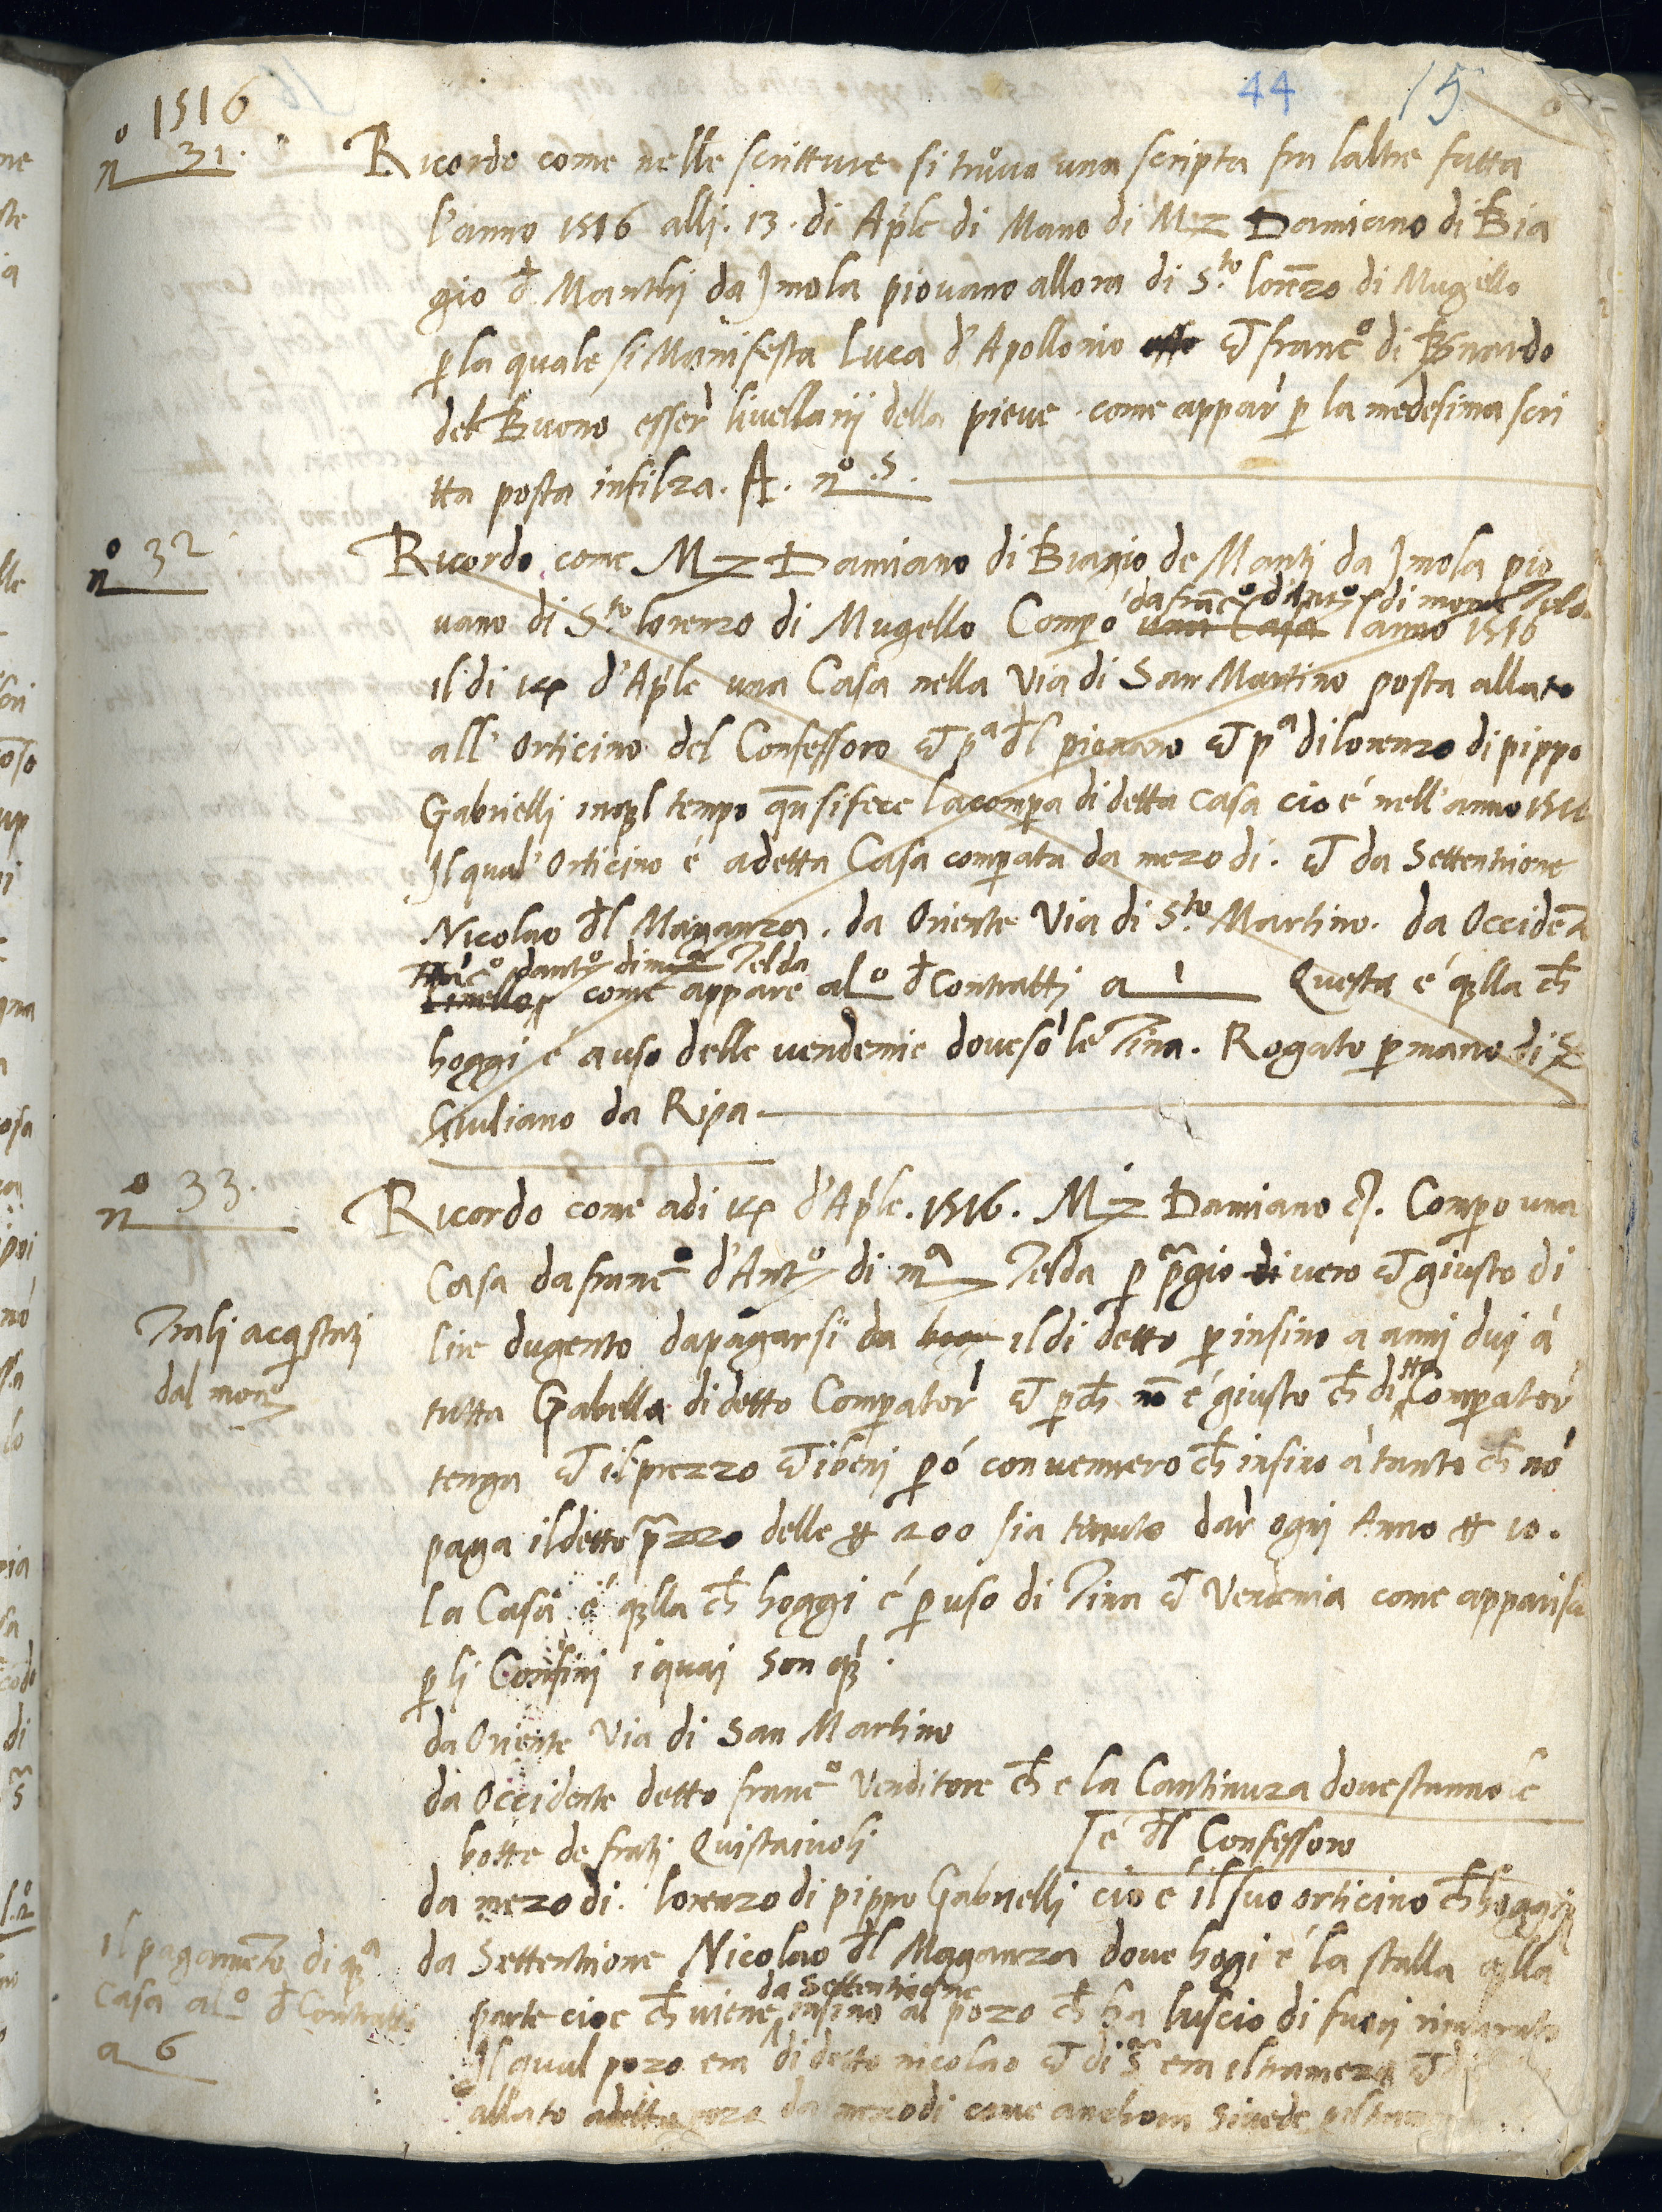 44 15
1516
nº 31.
Ricordo come nelle scritture si truova una scripta fra laltre fatta
l'anno 1516 alli. 13. di Aple di Mano di Mz Damiano di Bia
gio d. Manthj da Jmola piovano allora di S.to lorēzo di Mugello
p la quale si Manifesta Luca d'Apollonio et francº di Bnardo
del Buono esser livellarij della pieve. come appar p la medesima scri
tta posta infilza. A. nº .5.
nº 32
Ricordo come Mz Damiano di Biagio de Manti da Jmola pio
da francº d'Antº di mona Telda
vano di S.to lorenzo di Mugello Compo una Casa l'anno 1516
il di 14 d'Aple una Casa nella Via di San Martino posta allato
all' Orticino del Confessoro et pª dl piovano et pª di lorenzo di pippo
Gabrielli in ql tempo qñ si fece la compa di detta casa cio é nell'anno 1516
Jl qual' Orticino é a detta Casa compata da mezo di. et da Settentrione
Nicolao dl Maganza. da Oriente Via di S.to Martino. da Occidēt
francº dantº di mª Telda
come appare al º d Contratti a 1 Questa é qlla ch
hoggi é a uso delle vendemie dove sō le Tina. Rogato p mano di S
Giuliano da Ripa.
nº 33.
Ricordo come adi 14 d'Aple. 1516. Mz Damiano et. Compo una
Casa da francº d'Antº di mª Telda p pgio di vero et giusto di
Trali acqstatj
dal monº
lire dugento da pagarsi da il di detto p insino a anni duj à
tutta Gabella di detto Compator et pch nō é giusto ch di tto Compator
tenga et il prezzo et i benj pó convennero ch insino à tanto ch nō
paga il detto pzzo delle # 200 sia tenuto dar ognj Anno # 10.
la Casa é qlla ch hoggi é p uso di Tina et Vendemia come apparisce
p lj Confinj i quaj son qº.
da Oriente Via di San Martino
da Occidente detto francº Venditore ch e la Cantinuza dove stanno le
botte de fratj Quistaivoli
[é dl Confessoro
da mezo di. lorenzo di pippo Gabrielli cio é il suo orticino ch hoggi
da Settentrione Nicolao dl Maganza dove hogi é la stalla qlla
da Settentrione
parte cioe ch viene insino al pozo ch ha luscio di fuorj murato
il pagamēto di qª
Casa al º d Contratti
a 6
Jl qual pozo era di detto nicolao et di sª era il tramezo et
allato a detto pozo da mezodi come anchora si vede